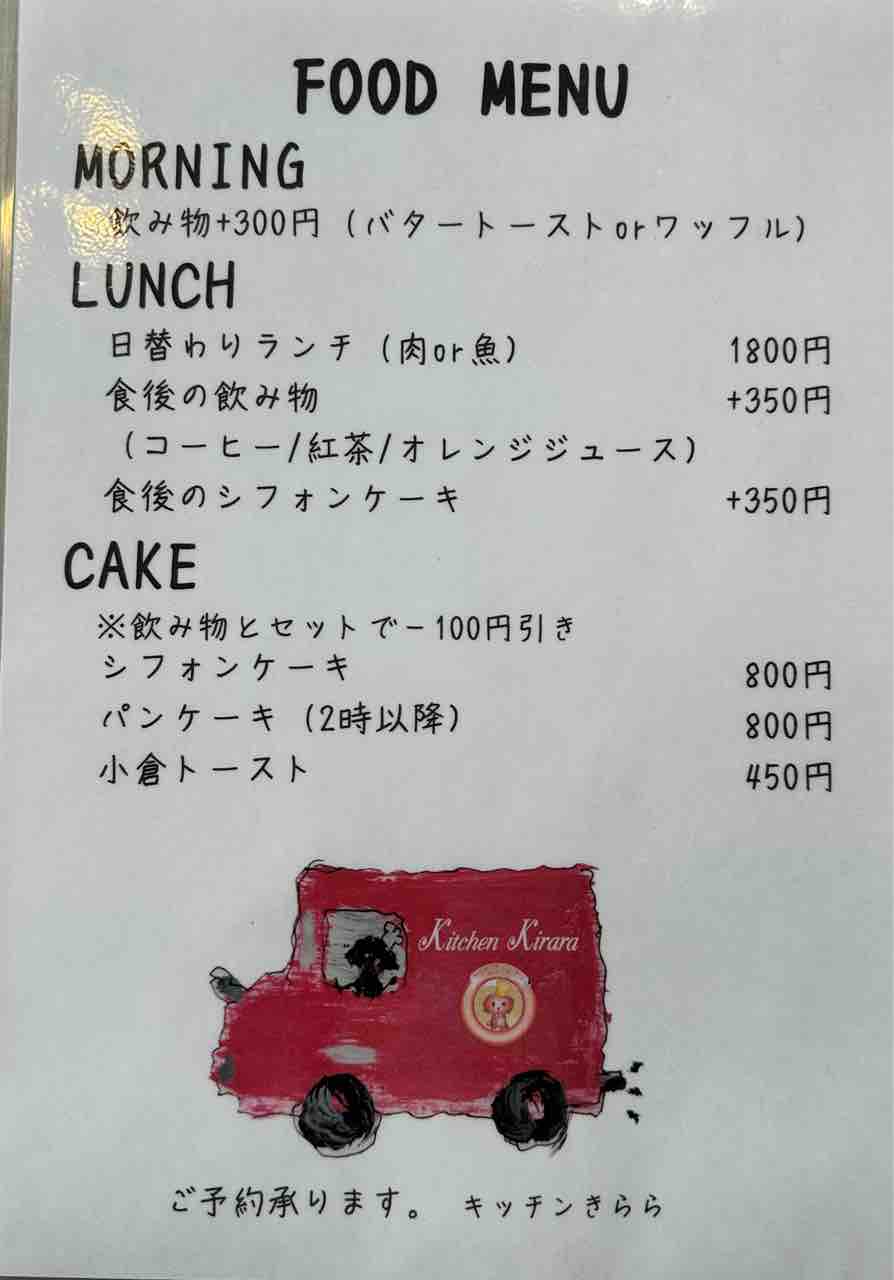 FOOD MENU
MORNING
飲み物+300円（バタートーストorワッフル）
LUNCH
日替わりランチ（肉or魚） 1800円
食後の飲み物 +350円
（コーヒー/紅茶/オレンジジュース）
食後のシフォンケーキ +350円
CAKE
※飲み物とセットで－100円引き
シフォンケーキ 800円
パンケーキ（2時以降） 800円
小倉トースト 450円
Kitchen Kirara
ご予約承ります。 キッチンきらら